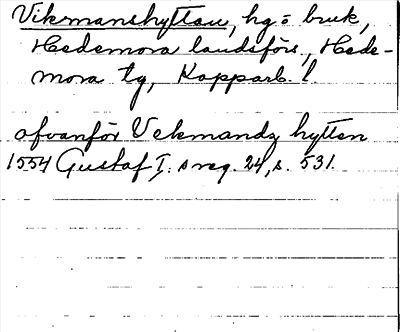 Vikmanshyttan, hg o bruk,
Hedemora landsförs., Hede-
mora tg, Kopparb. l
ofvanför Vekmandz hytten
1554 Gustaf I:s reg. 24, s. 531.